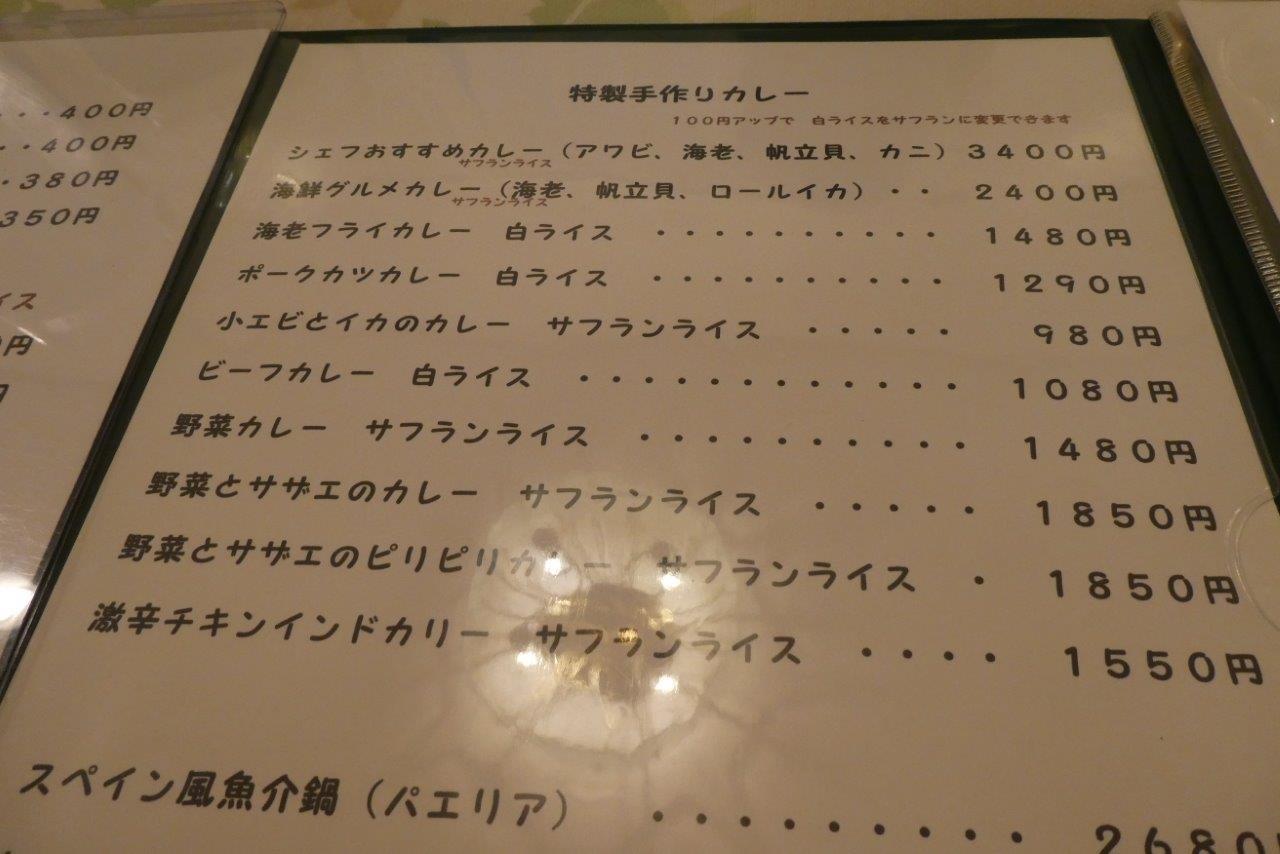 ・・・400円
・・400円
・380円
350円
イス
円
特製手作りカレー
100円アップで　白ライスをサフランに変更できます
シェフおすすめカレー（アワビ、海老、帆立貝、カニ）3400円
サフランライス
海鮮グルメカレー（海老、帆立貝、ロールイカ）・・　2400円
サフランライス
海老フライカレー　白ライス　・・・・・・・・・・　1480円
ポークカツカレー　白ライス　・・・・・・・・・・　1290円
小エビとイカのカレー　サフランライス　・・・・・　980円
ビーフカレー　白ライス　・・・・・・・・・・・・　1080円
野菜カレー　サフランライス　・・・・・・・・・・　1480円
野菜とサザエのカレー　サフランライス　・・・・・　1850円
野菜とサザエのピリピリカレー　サフランライス　・　1850円
激辛チキンインドカリー　サフランライス　・・・・　1550円
スペイン風魚介鍋（パエリア）　・・・・・・・・・　2680円